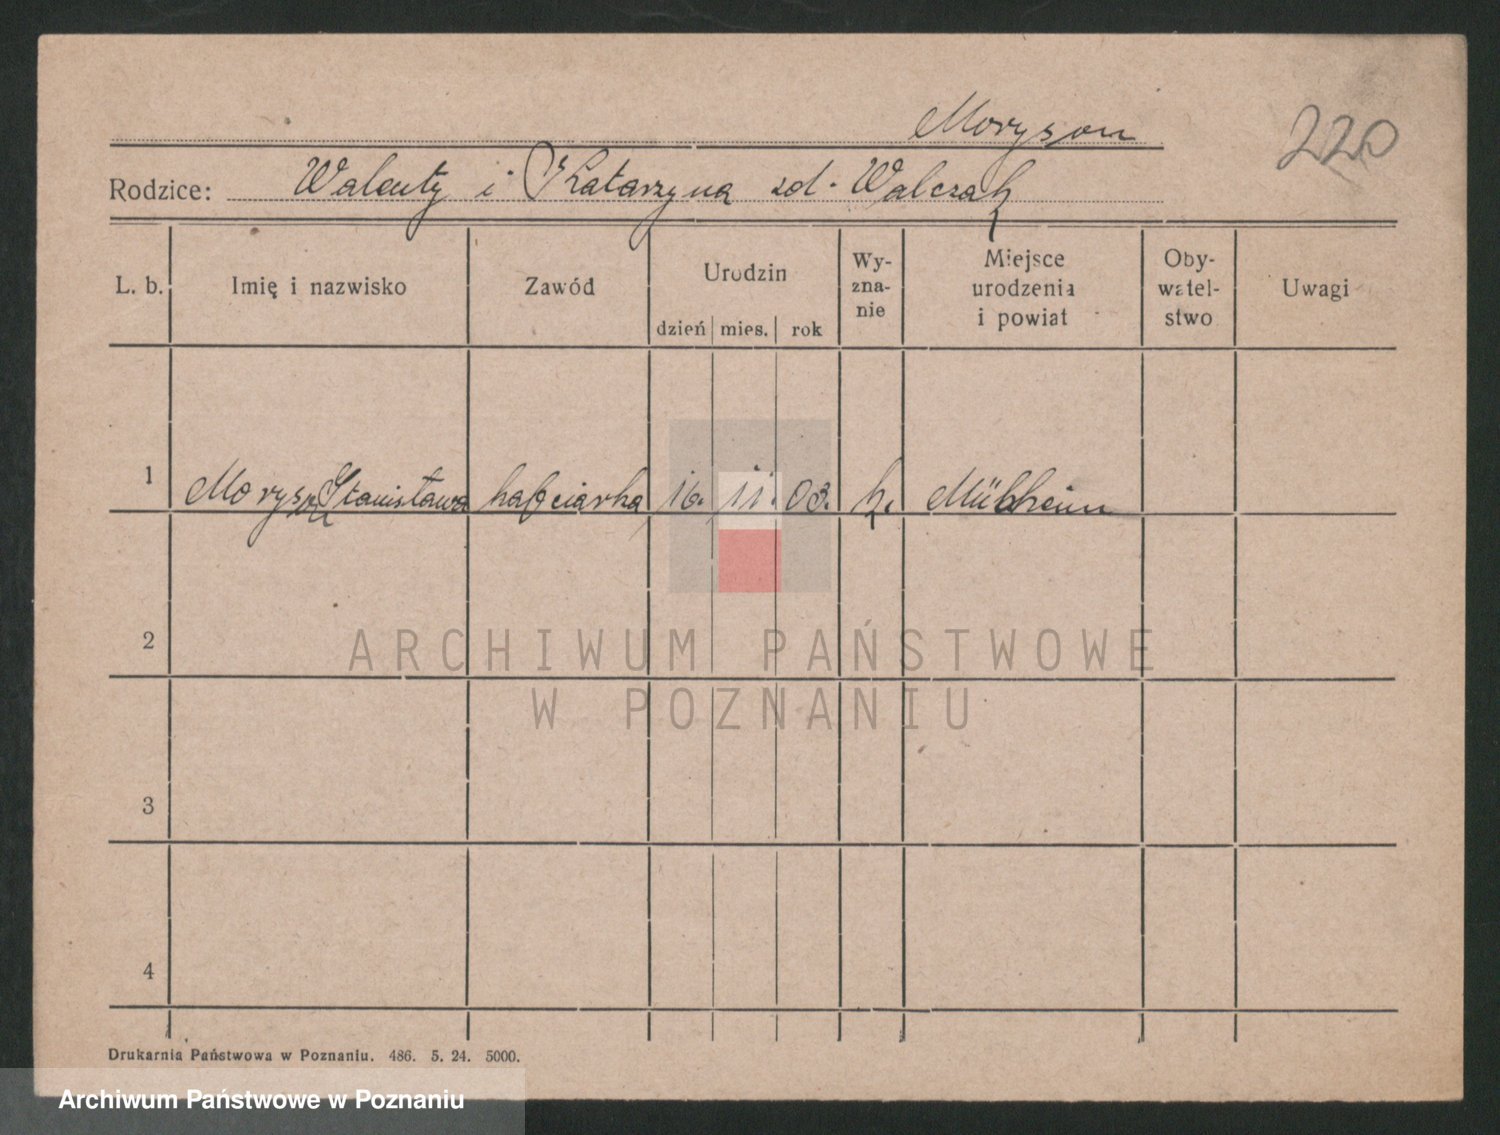 Moryson
220
Rodzice: Walenty i Katarzyna zd. Walczak
L. b. Imię i nazwisko Zawód Urodzin dzień mies. rok Wy-zna-nie Miejsce urodzenia i powiat Oby-watel-stwo Uwagi
1 Moryson Stanisława hafciarka 16. 11. 03. k. Mülheim
2
ARCHIWUM PAŃSTWOWE
W POZNANIU
3
4
Drukarnia Państwowa w Poznaniu. 486. 5. 24. 5000.
Archiwum Państwowe w Poznaniu